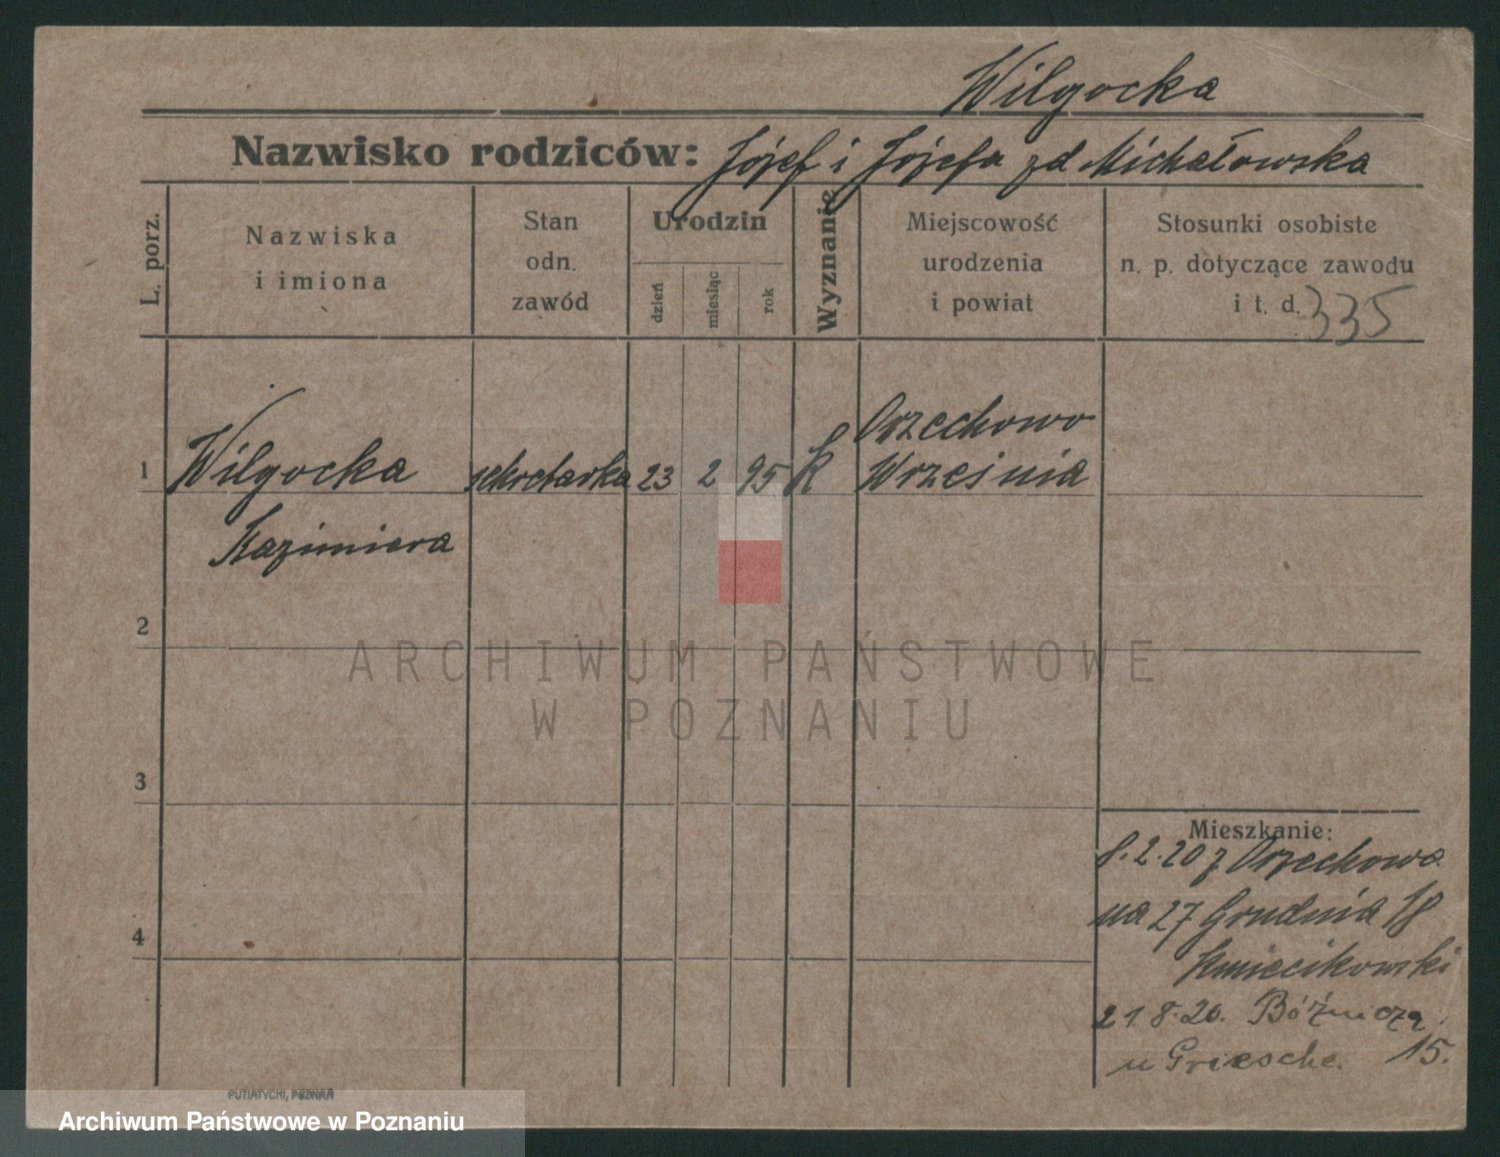 Wilgocka
Nazwisko rodziców: Józef i Józefa zd Michałowska
L. porz.
Nazwiska
i imiona
Stan
odn.
zawód
Urodzin
dzień
miesiąc
rok
Wyznanie
Miejscowość
urodzenia
i powiat
Stosunki osobiste
n. p. dotyczące zawodu
i t. d. 335
Orzechowo
1 Wilgocka sekretarka 23 2 95 K Września
Kazimiera
2
ARCHIWUM PAŃSTWOWE
W POZNANIU
3
Mieszkanie:
8.2.20 z Orzechowa
na 27 Grudnia 18
4
Kmiecikowski
21.8.20. Bóżnicza
u Griesche. 15.
PUTIATYCKI, POZNAŃ
Archiwum Państwowe w Poznaniu